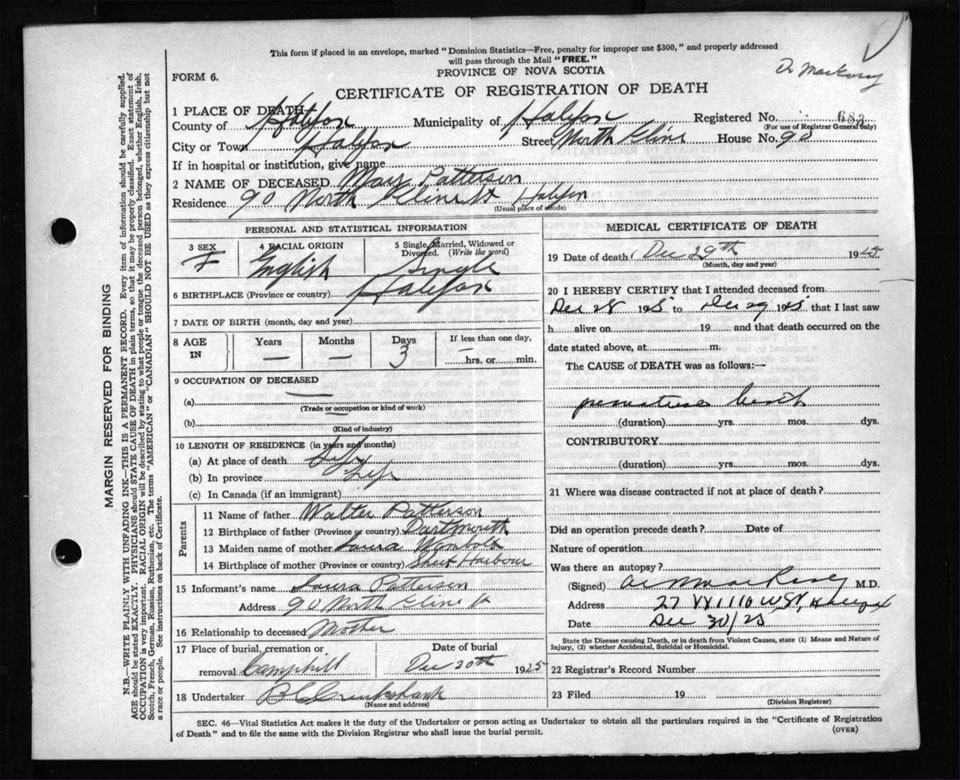 This form if placed in an envelope, marked "Dominion Statistics—Free, penalty for improper use $300," and properly addressed
will pass through the Mail "FREE."
PROVINCE OF NOVA SCOTIA
FORM 6.
CERTIFICATE OF REGISTRATION OF DEATH
1 PLACE OF DEATH
County of Halifax Municipality of Halifax Registered No. 683
(For use of Registrar General only)
City or Town Halifax Street North Kline House No. 90
If in hospital or institution, give name
2 NAME OF DECEASED Mary Patterson
Residence 90 North Kline St Halifax
(Usual place of abode)
PERSONAL AND STATISTICAL INFORMATION
3 SEX F
4 RACIAL ORIGIN English
5 Single, Married, Widowed or Divorced. (Write the word) Single
6 BIRTHPLACE (Province or country) Halifax
7 DATE OF BIRTH (month, day and year)
8 AGE IN Years — Months — Days 3 If less than one day, — hrs. or min.
9 OCCUPATION OF DECEASED
(a) —
(Trade or occupation or kind of work)
(b) —
(Kind of industry)
10 LENGTH OF RESIDENCE (in years and months)
(a) At place of death Life
(b) In province Life
(c) In Canada (if an immigrant)
Parents
11 Name of father Walter Patterson
12 Birthplace of father (Province or country) Dartmouth
13 Maiden name of mother Laura
14 Birthplace of mother (Province or country) Sheet Harbour
15 Informant's name Laura Patterson
Address 90 North Kline St
16 Relationship to deceased Mother
17 Place of burial, cremation or removal Camphill
Date of burial Dec 30th 1925
18 Undertaker B C Cruikshank
(Name and address)
MEDICAL CERTIFICATE OF DEATH
19 Date of death Dec 29th 1925
(Month, day and year)
20 I HEREBY CERTIFY that I attended deceased from
Dec 28 1925 to Dec 29 1925 that I last saw
h alive on 19 and that death occurred on the
date stated above, at m.
The CAUSE of DEATH was as follows:—
premature birth
(duration) yrs. mos. dys.
CONTRIBUTORY
(duration) yrs. mos. dys.
21 Where was disease contracted if not at place of death?
Did an operation precede death? Date of
Nature of operation
Was there an autopsy?
(Signed) M.D.
Address 27
Date Dec 30/25
State the Disease causing Death, or in death from Violent Causes, state (1) Means and Nature of
Injury, (2) whether Accidental, Suicidal or Homicidal.
22 Registrar's Record Number
23 Filed 19
(Division Registrar)
SEC. 46—Vital Statistics Act makes it the duty of the Undertaker or person acting as Undertaker to obtain all the particulars required in the "Certificate of Registration
of Death" and to file the same with the Division Registrar who shall issue the burial permit.
(OVER)
MARGIN RESERVED FOR BINDING
N.B.—WRITE PLAINLY WITH UNFADING INK—THIS IS A PERMANENT RECORD. Every item of information should be carefully supplied.
AGE should be stated EXACTLY. PHYSICIANS should STATE CAUSE OF DEATH in plain terms, so that it may be properly classified. Exact statement of
OCCUPATION is very important. RACIAL ORIGIN will be described by stating to what people or tongue the deceased person belonged, whether English, Irish,
Scotch, French, German, Russian, Ruthenian, etc. The terms "AMERICAN" or "CANADIAN" SHOULD NOT BE USED as they express citizenship but not
a race or people. See instructions on back of Certificate.